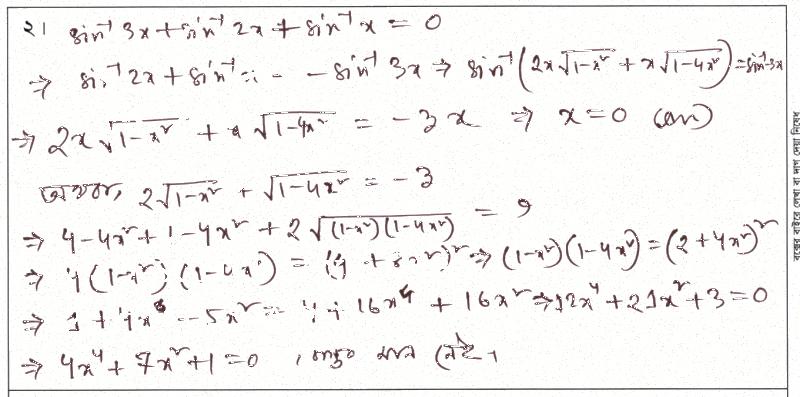 ২। sin⁻¹ 3x + sin⁻¹ 2x + sin⁻¹ x = 0
⇒ sin⁻¹ 2x + sin⁻¹ = - sin⁻¹ 3x ⇒ sin⁻¹ (2x√(1-x²) + x√(1-4x²)) = sin⁻¹-3x
⇒ 2x√(1-x²) + x√(1-4x²) = -3x ⇒ x=0 (an)
অথবা, 2√(1-x²) + √(1-4x²) = -3
⇒ 4-4x² + 1-4x² + 2√((1-x²)(1-4x²)) = 9
⇒ 4(1-x²)(1-4x²) = (4 + 8x²)² ⇒ (1-x²)(1-4x²) = (2+4x²)²
⇒ 1 + 4x⁴ - 5x² = 4 + 16x⁴ + 16x² ⇒ 12x⁴ + 21x² + 3 = 0
⇒ 4x⁴ + 7x² + 1 = 0, মান নেই।
বক্সের বাইরে লেখা বা দাগ দেয়া নিষেধ